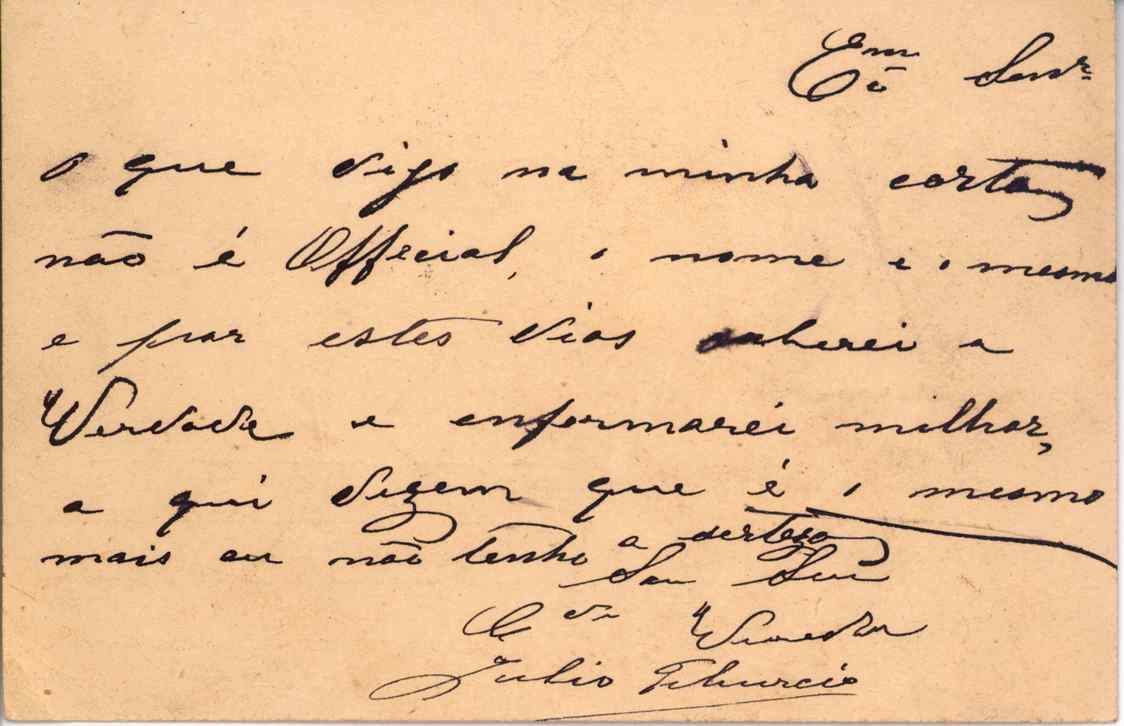 Exmº Senr
o que digo na minha carta
não é Official, o nome e o mesmo
e por estes dias saberei a
Verdade e enformarei milhor,
a qui dizem que é o mesmo
mais eu não tenho a serteza
Sou Seu
Cdº
Julio Tiburcio